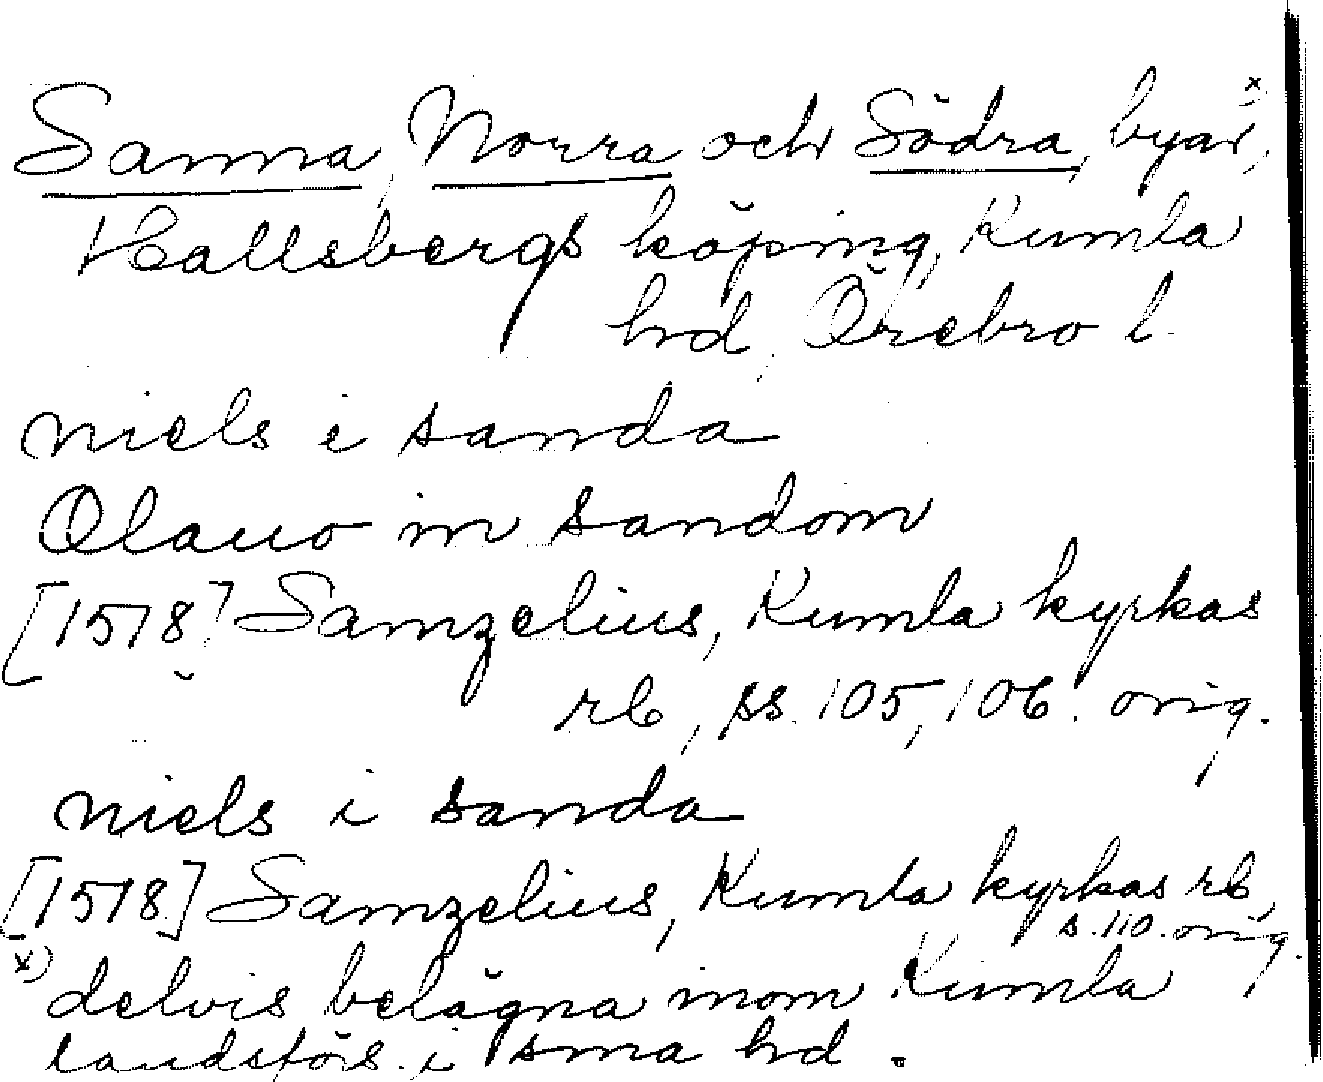 Sanna, Norra och Södra, byar x),
Hallsbergs köping, Kumla
hd, Örebro l.
niels i sanda
Olauo in sandom
[1518] Samzelius, Kumla kyrkas
rb, ss. 105, 106. orig.
niels i sanda
[1518] Samzelius, Kumla kyrkas rb,
s. 110. orig.
x) delvis belägna inom Kumla
landsförs. i sma hd.